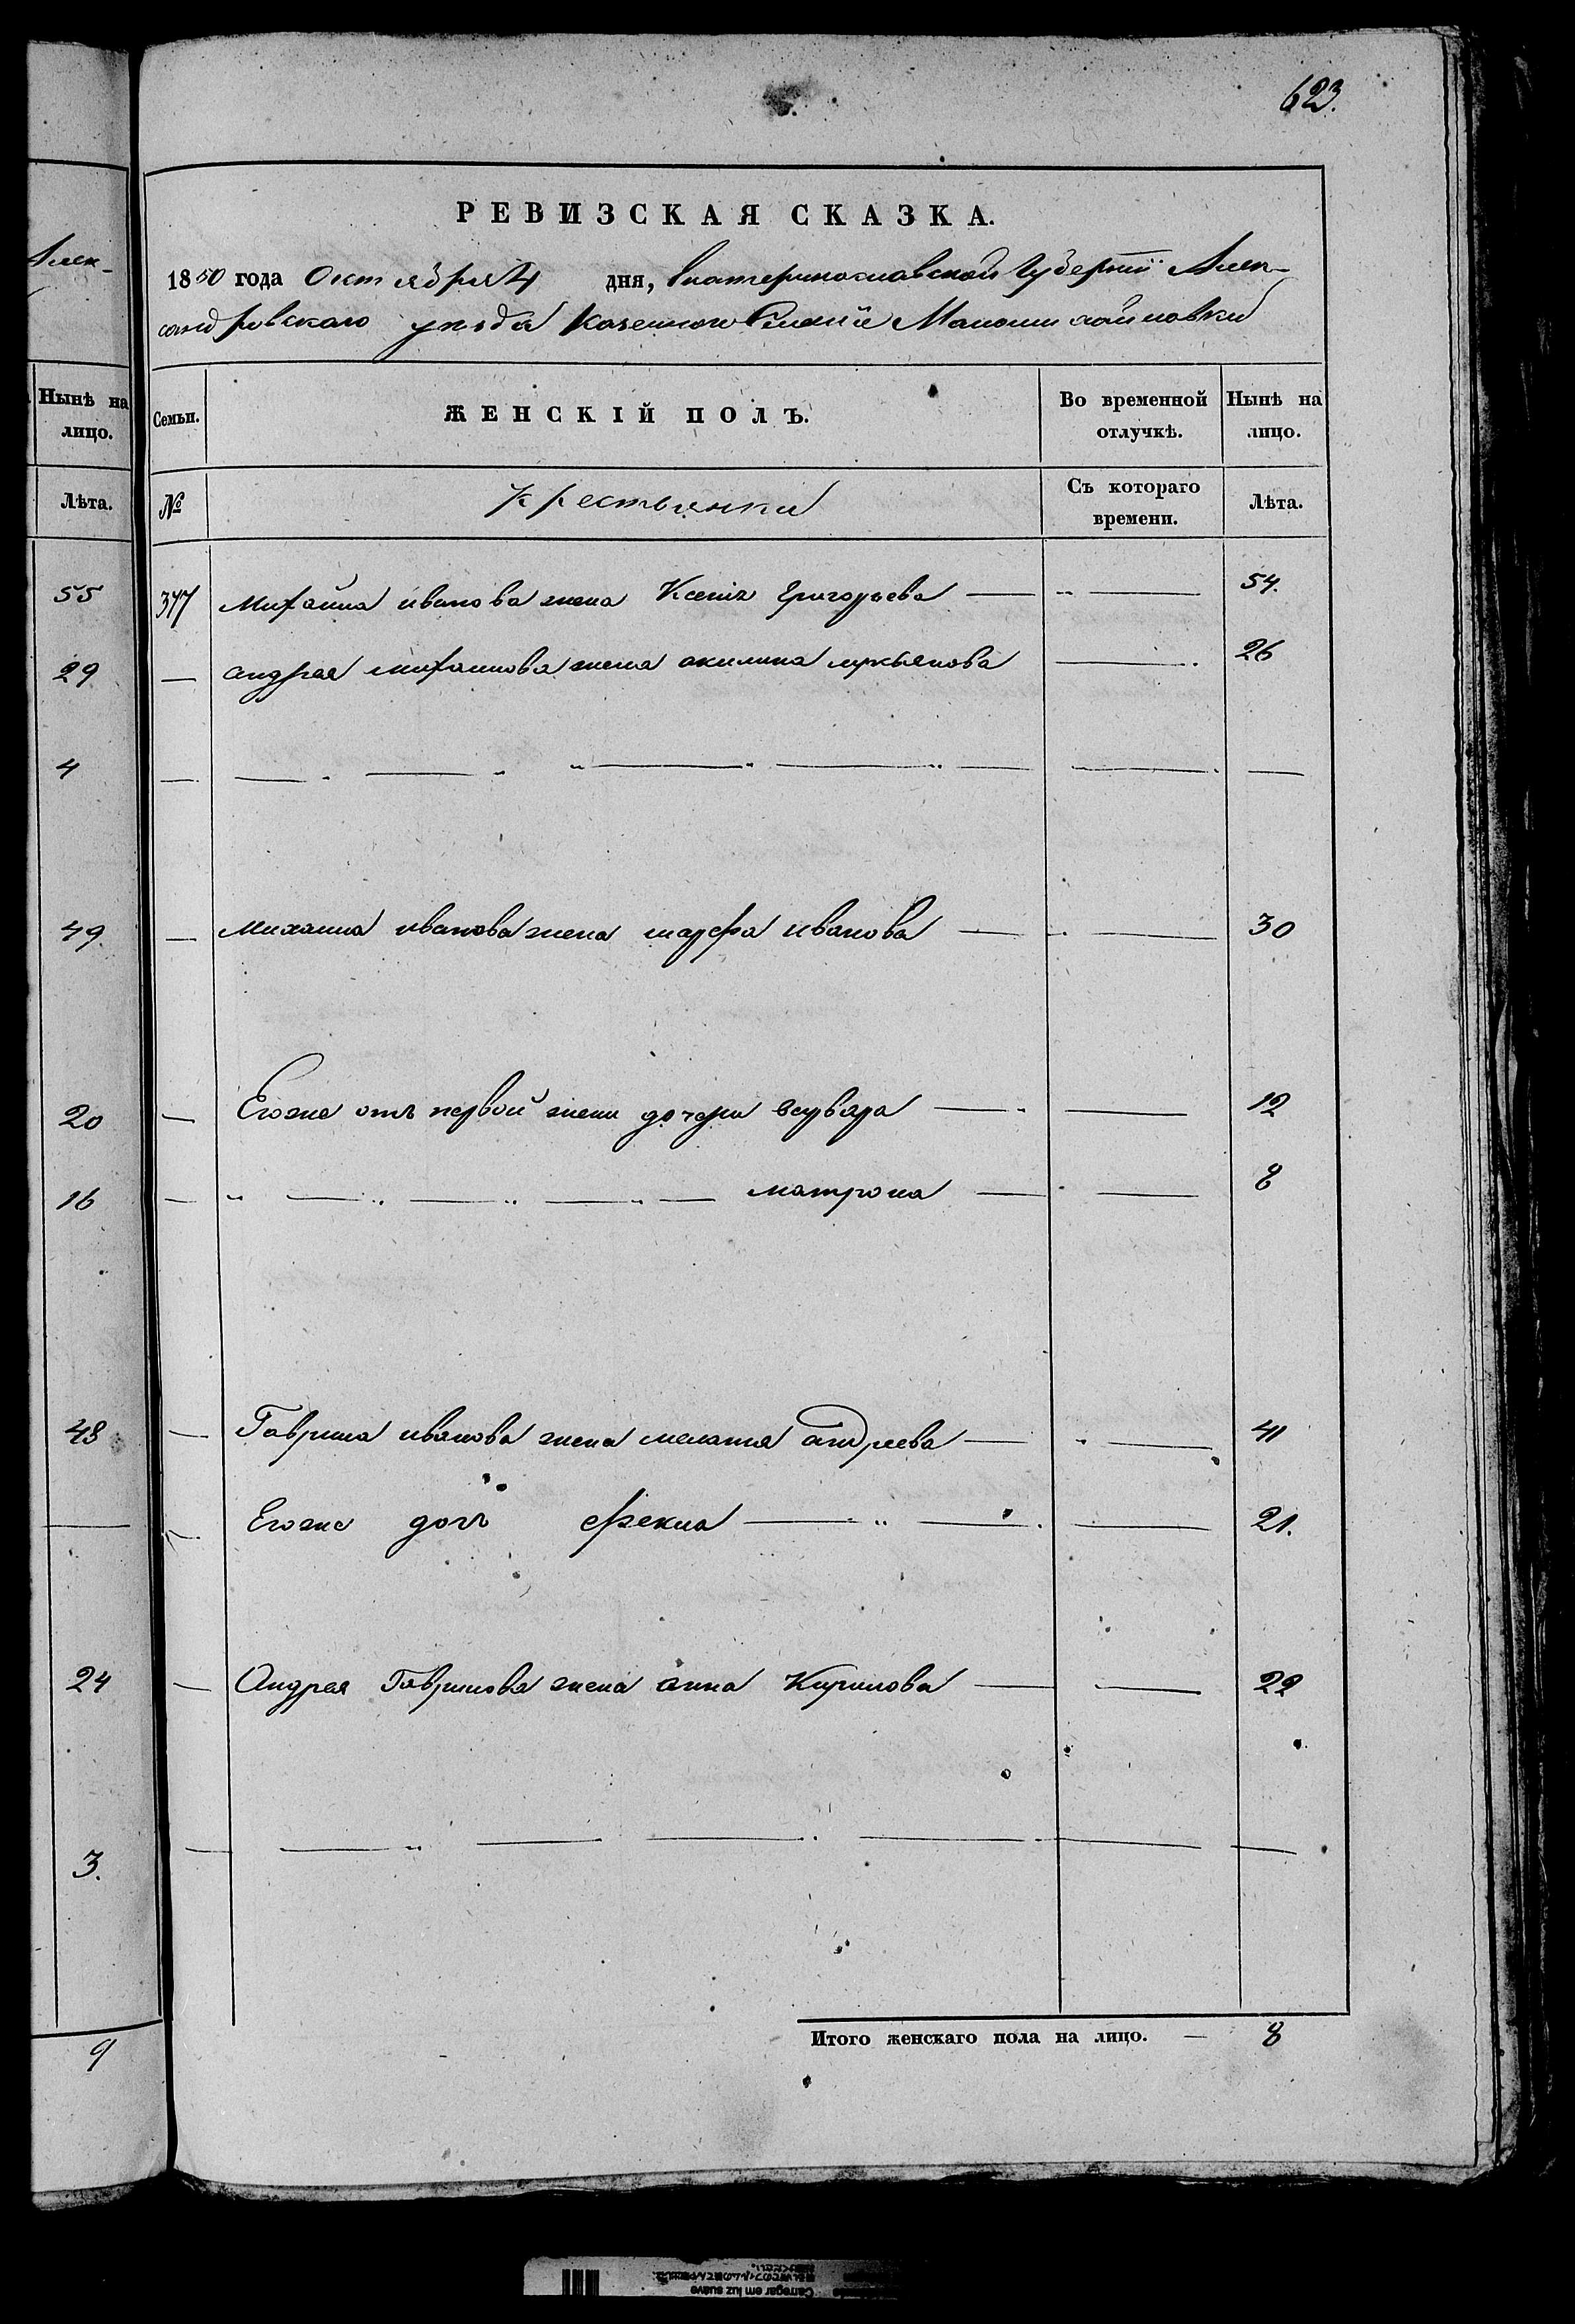 623.
РЕВИЗСКАЯ СКАЗКА.
Алек-
1850 года Октября 4 дня, Екатеринославской Губернии Алек-
сандровскаго уезда Казенного Селения Маломихайловки
Нынѣ на лицо.
Семьи.
ЖЕНСКІЙ ПОЛЪ.
Во временной отлучкѣ.
Нынѣ на лицо.
Лѣта.
№
Крестьянки
Съ котораго времени.
Лѣта.
55 377 Михайла иванова жена Ксения Григорьева — „ — 54.
29 — андрея михаилова жена акилина лукьянова — 26
4 — — — „ — „ — — —
49 — михаила иванова жена марфа иванова — — 30
20 — Егоже отъ первой жени дочери варвара — — 12
16 — „ — „ — „ — „ — матрона — — 8
48 — Гаврила иванова жена мелания андреева — — 41
— Егоже дочь фекла — „ — — 21.
24 — Андрея Гаврилова жена анна Кирилова — — 22
3. — — „ — — — — —
9
Итого женскаго пола на лицо. — 8
Carregar em luz suave